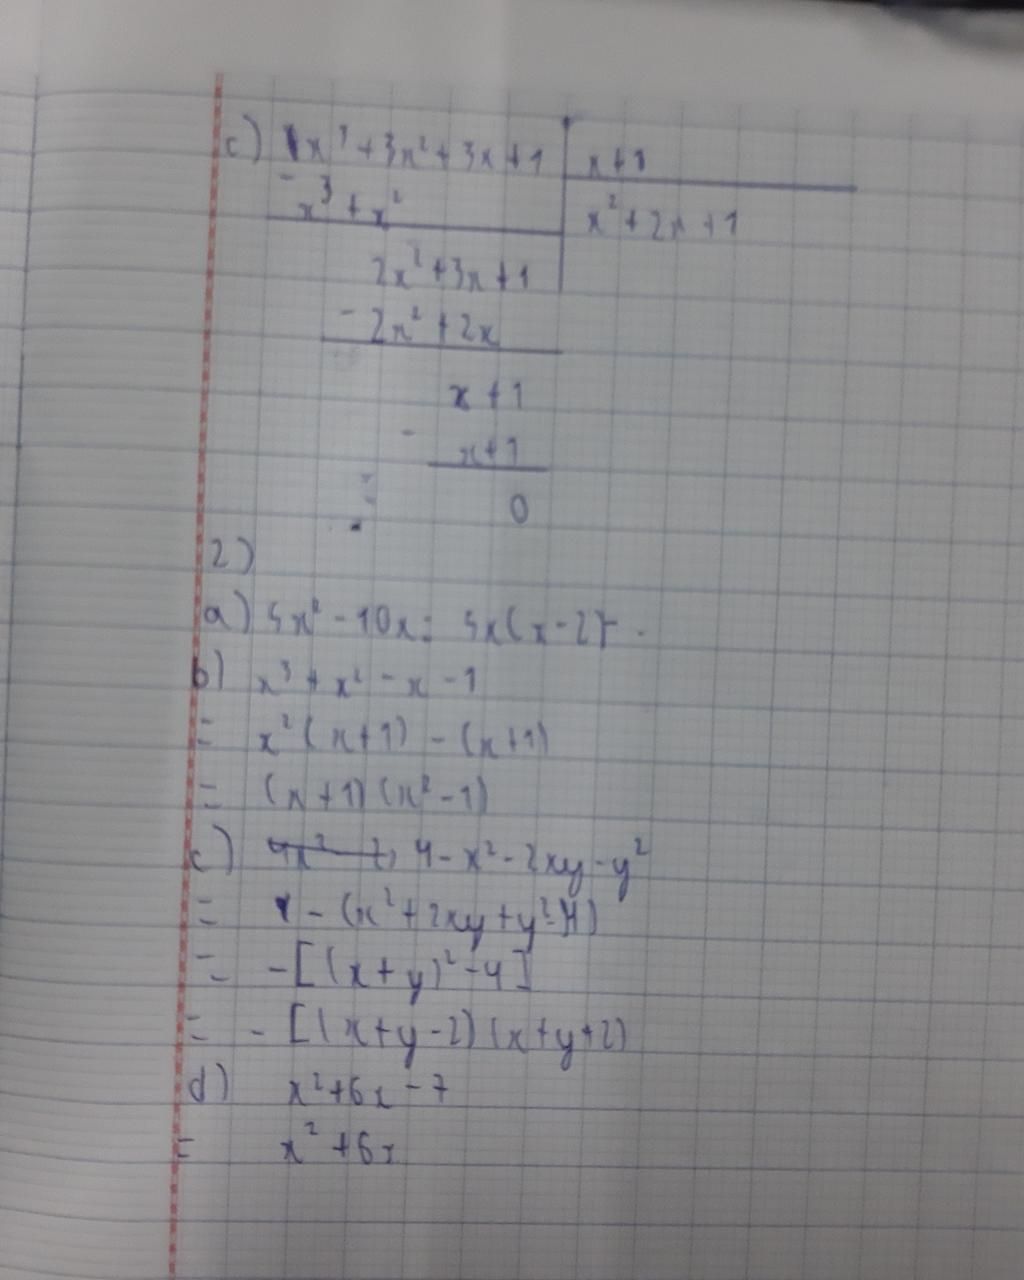 c) x³ + 3x² + 3x + 1 | x + 1
- x³ + x² | x² + 2x + 1
2x² + 3x + 1
- 2x² + 2x
x + 1
- x + 1
0
2)
a) 5x² - 10x = 5x(x - 2)
b) x³ + x² - x - 1
= x²(x + 1) - (x + 1)
= (x + 1)(x² - 1)
c) 4 - x² - 2xy - y²
= - (x² + 2xy + y² - 4)
= - [(x + y)² - 4]
= - [(x + y - 2)(x + y + 2)
d) x² + 6x - 7
= x² + 6x